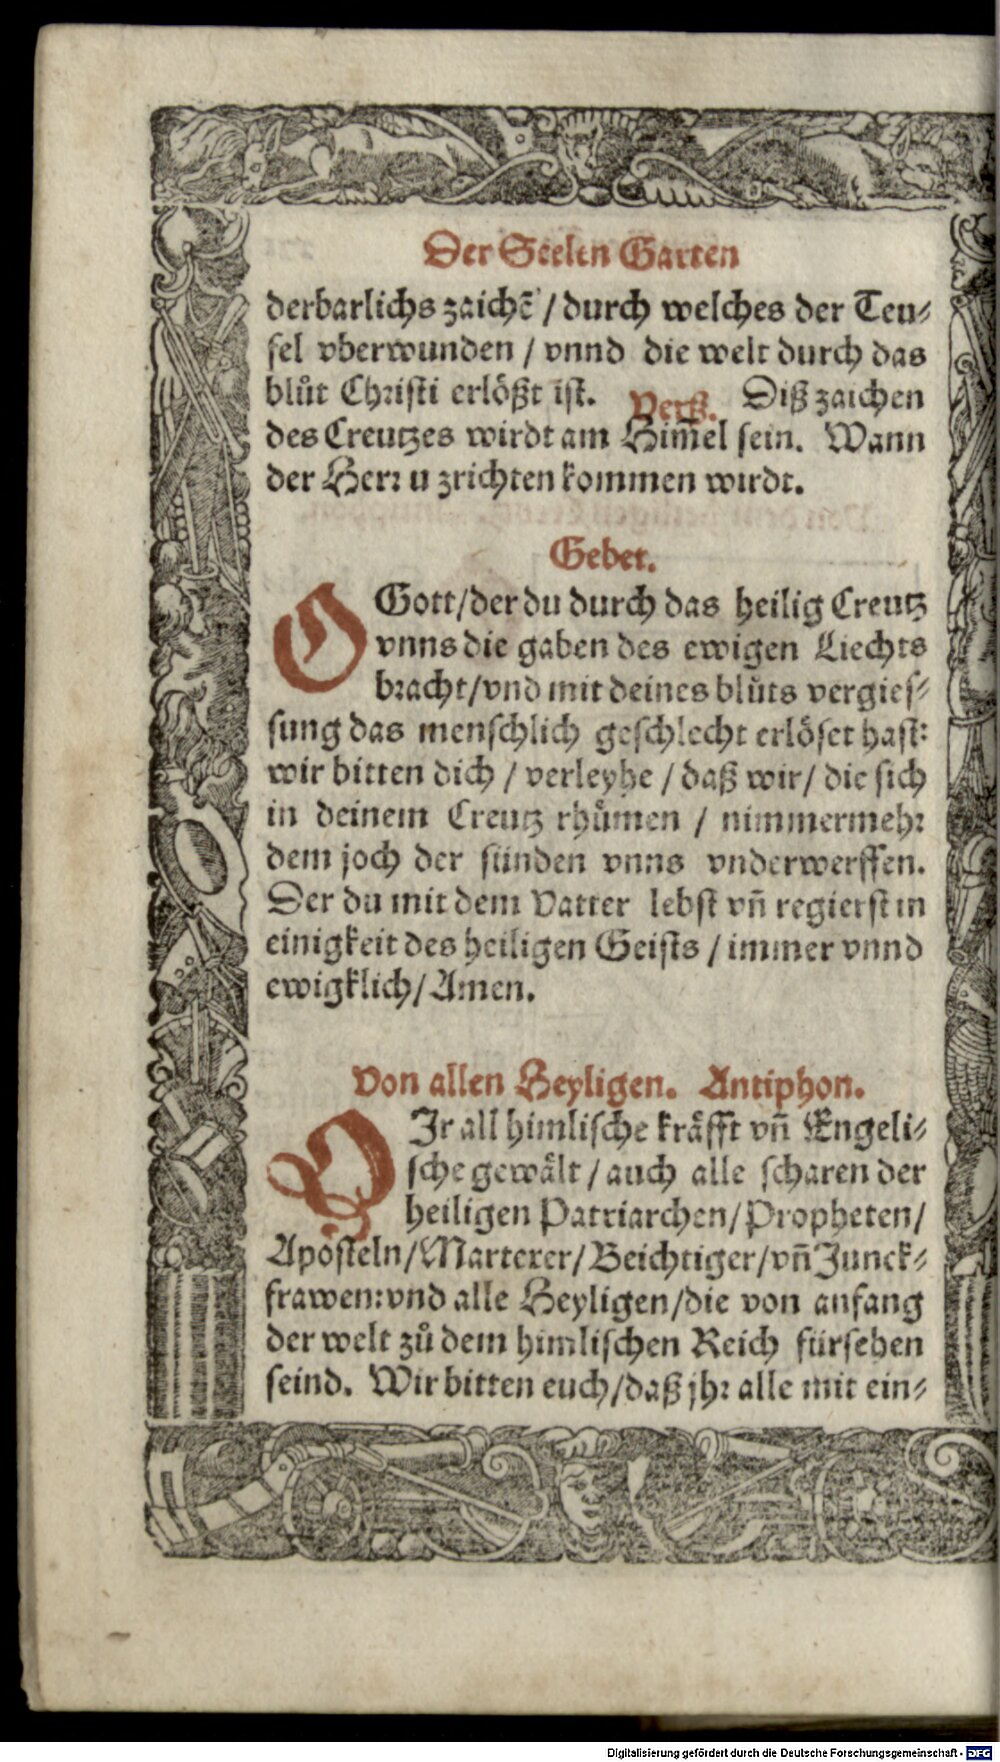 Der Seelen Garten
derbarlichs zaichē / durch welches der Teu⸗
fel vberwunden / vnnd die welt durch das
blůt Christi erlößt ist. Verß. Diß zaichen
des Creutzes wirdt am Him̄el sein. Wann
der Herr u zrichten kommen wirdt.
Gebet.
O Gott/der du durch das heilig Creutz
vnns die gaben des ewigen Liechts
bracht/vnd mit deines blůts vergies⸗
sung das menschlich geschlecht erlöset hast:
wir bitten dich / verleyhe / daß wir/ die sich
in deinem Creutz rhůmen / nimmermehr
dem joch der sünden vnns vnderwerffen.
Der du mit dem Vatter lebst vñ regierst in
einigkeit des heiligen Geists / immer vnnd
ewigklich/Amen.
Von allen Heyligen. Antiphon.
O Ir all himlische kräfft vñ Engeli⸗
sche gewält / auch alle scharen der
heiligen Patriarchen/Propheten/
Aposteln/Marterer/Beichtiger/vñ Junck⸗
frawen:vnd alle Heyligen/die von anfang
der welt zů dem himlischen Reich fürsehen
seind. Wir bitten euch/daß jhr alle mit ein⸗
Digitalisierung gefördert durch die Deutsche Forschungsgemeinschaft - DFG